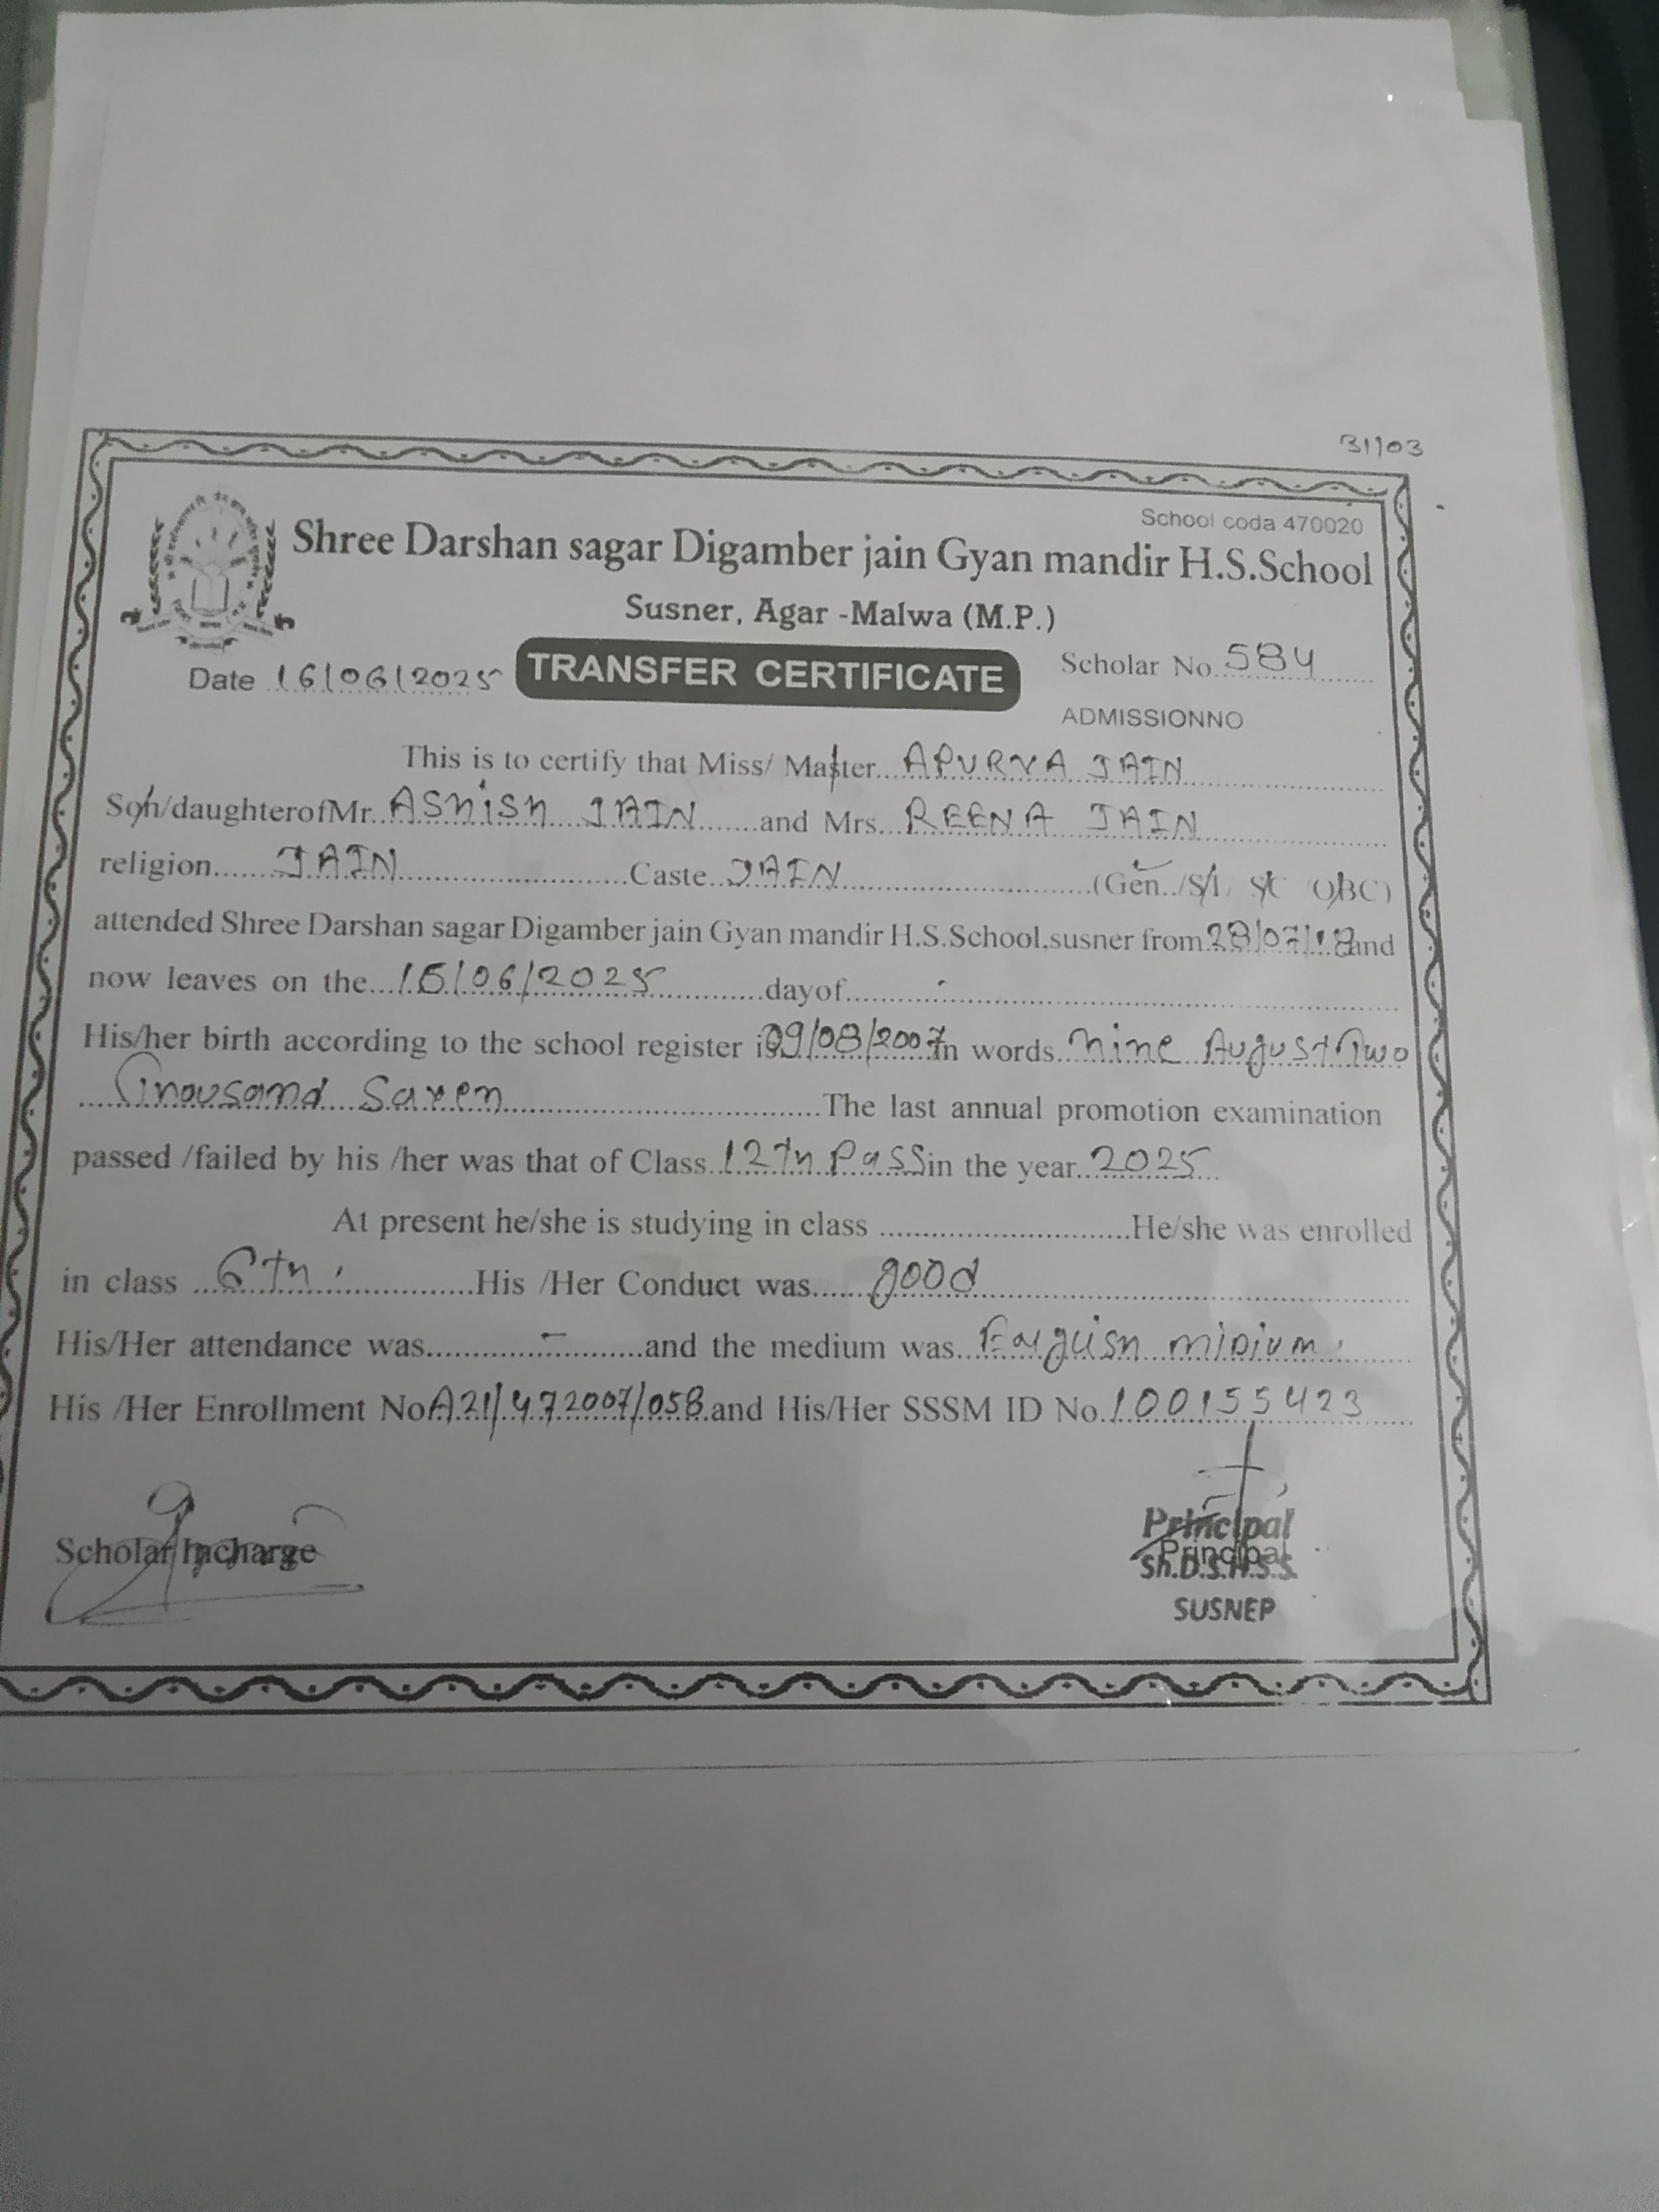 31/03
School coda 470020
Shree Darshan sagar Digamber jain Gyan mandir H.S.School
Susner, Agar -Malwa (M.P.)
Date 16/06/2025 TRANSFER CERTIFICATE Scholar No. 584
ADMISSIONNO
This is to certify that Miss/ Master APURVA JAIN
Son/daughterofMr. ASHISH JAIN and Mrs. REENA JAIN
religion JAIN Caste JAIN (Gen../ST/ SC OBC)
attended Shree Darshan sagar Digamber jain Gyan mandir H.S.School.susner from 28/07/18 and
now leaves on the 16/06/2025 dayof
His/her birth according to the school register is 09/08/2007 In words nine August Two
Thousand Saven The last annual promotion examination
passed /failed by his /her was that of Class 12th Pass in the year 2025
At present he/she is studying in class He/she was enrolled
in class 6th His /Her Conduct was good
His/Her attendance was - and the medium was English midium
His /Her Enrollment No A21/472007/058 and His/Her SSSM ID No. 100155423
Scholar Incharge
Principal
Principal
Sh.D.S.H.S.S.
SUSNER